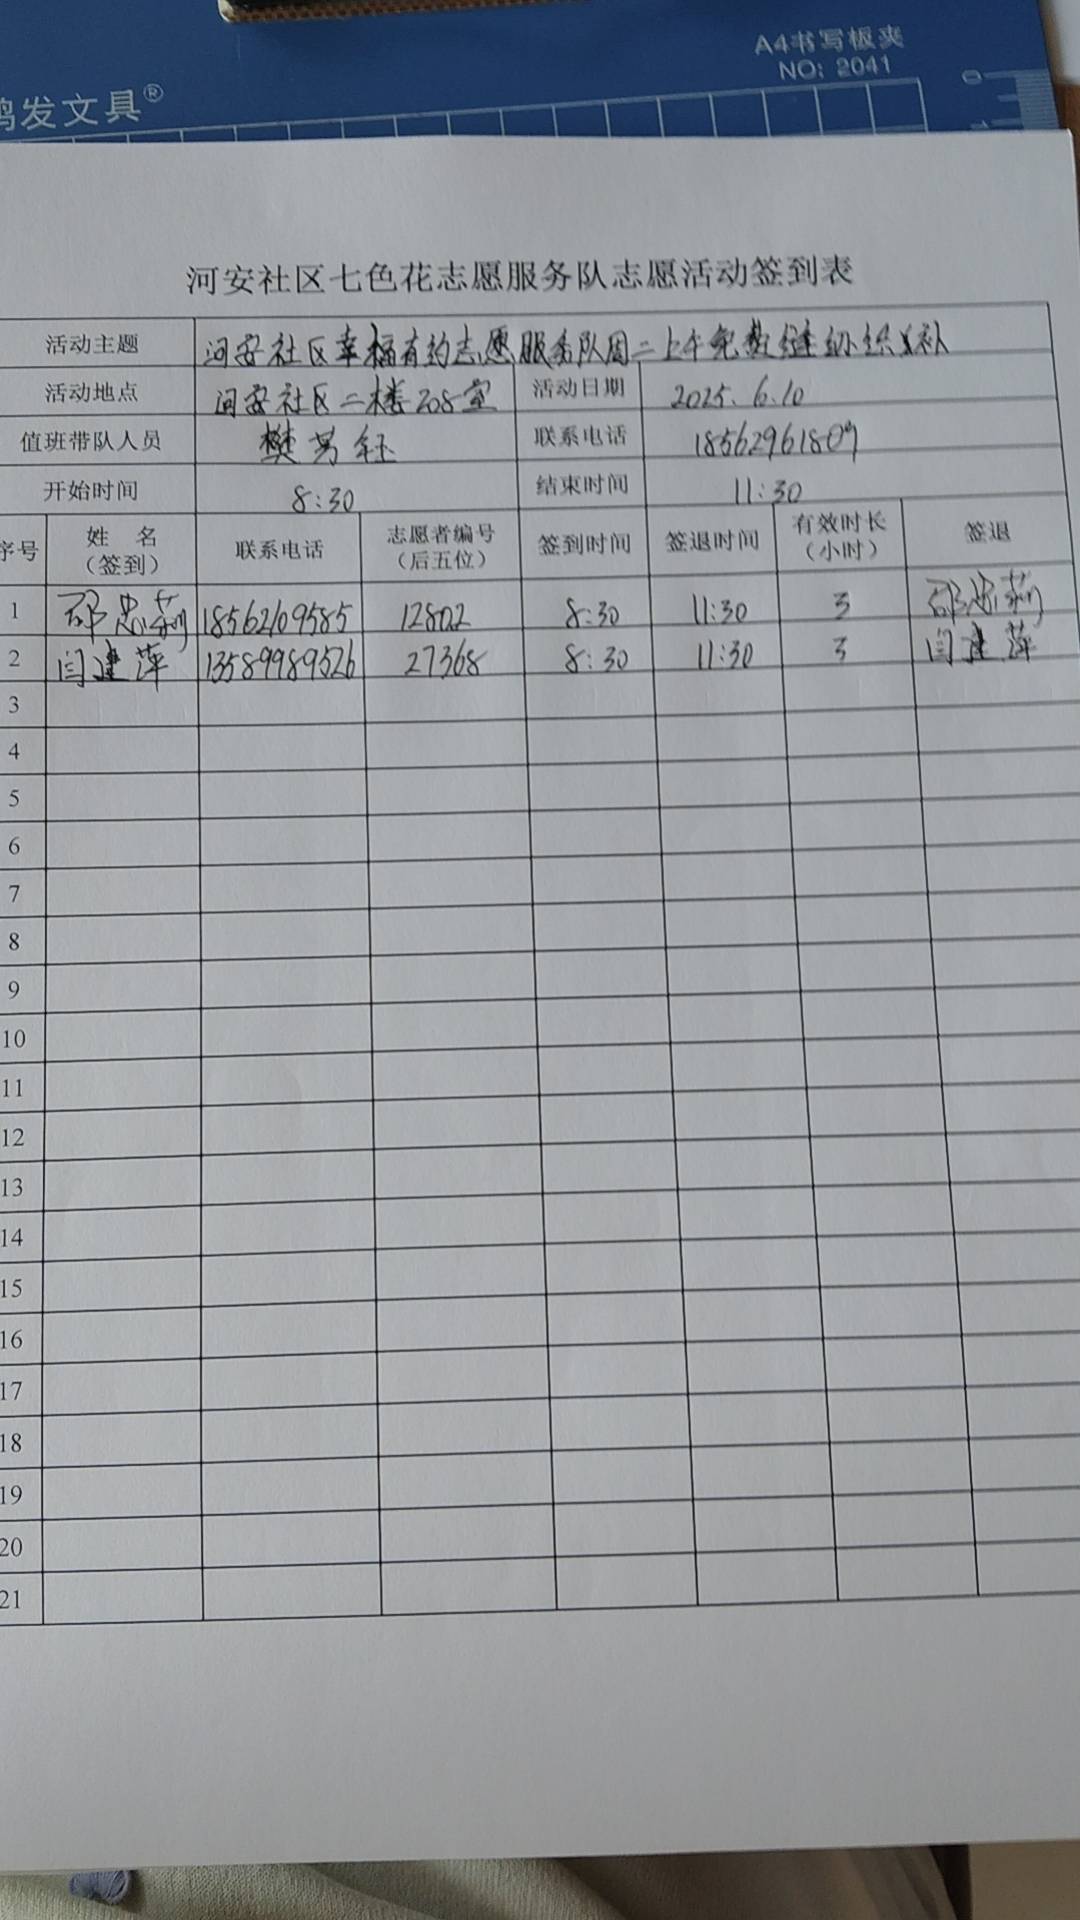 A4书写板夹
NO: 2041
发文具®
0
河安社区七色花志愿服务队志愿活动签到表
活动主题 河安社区幸福有约志愿服务队周二上午免费缝纫织补
活动地点 河安社区二楼208室 活动日期 2025.6.10
值班带队人员 樊芳钰 联系电话 18562961809
开始时间 8:30 结束时间 11:30
序号 姓 名（签到） 联系电话 志愿者编号（后五位） 签到时间 签退时间 有效时长（小时） 签退
1 邵忠莉 18562109585 12802 8:30 11:30 3 邵忠莉
2 闫建萍 13589989526 27368 8:30 11:30 3 闫建萍
3
4
5
6
7
8
9
10
11
12
13
14
15
16
17
18
19
20
21